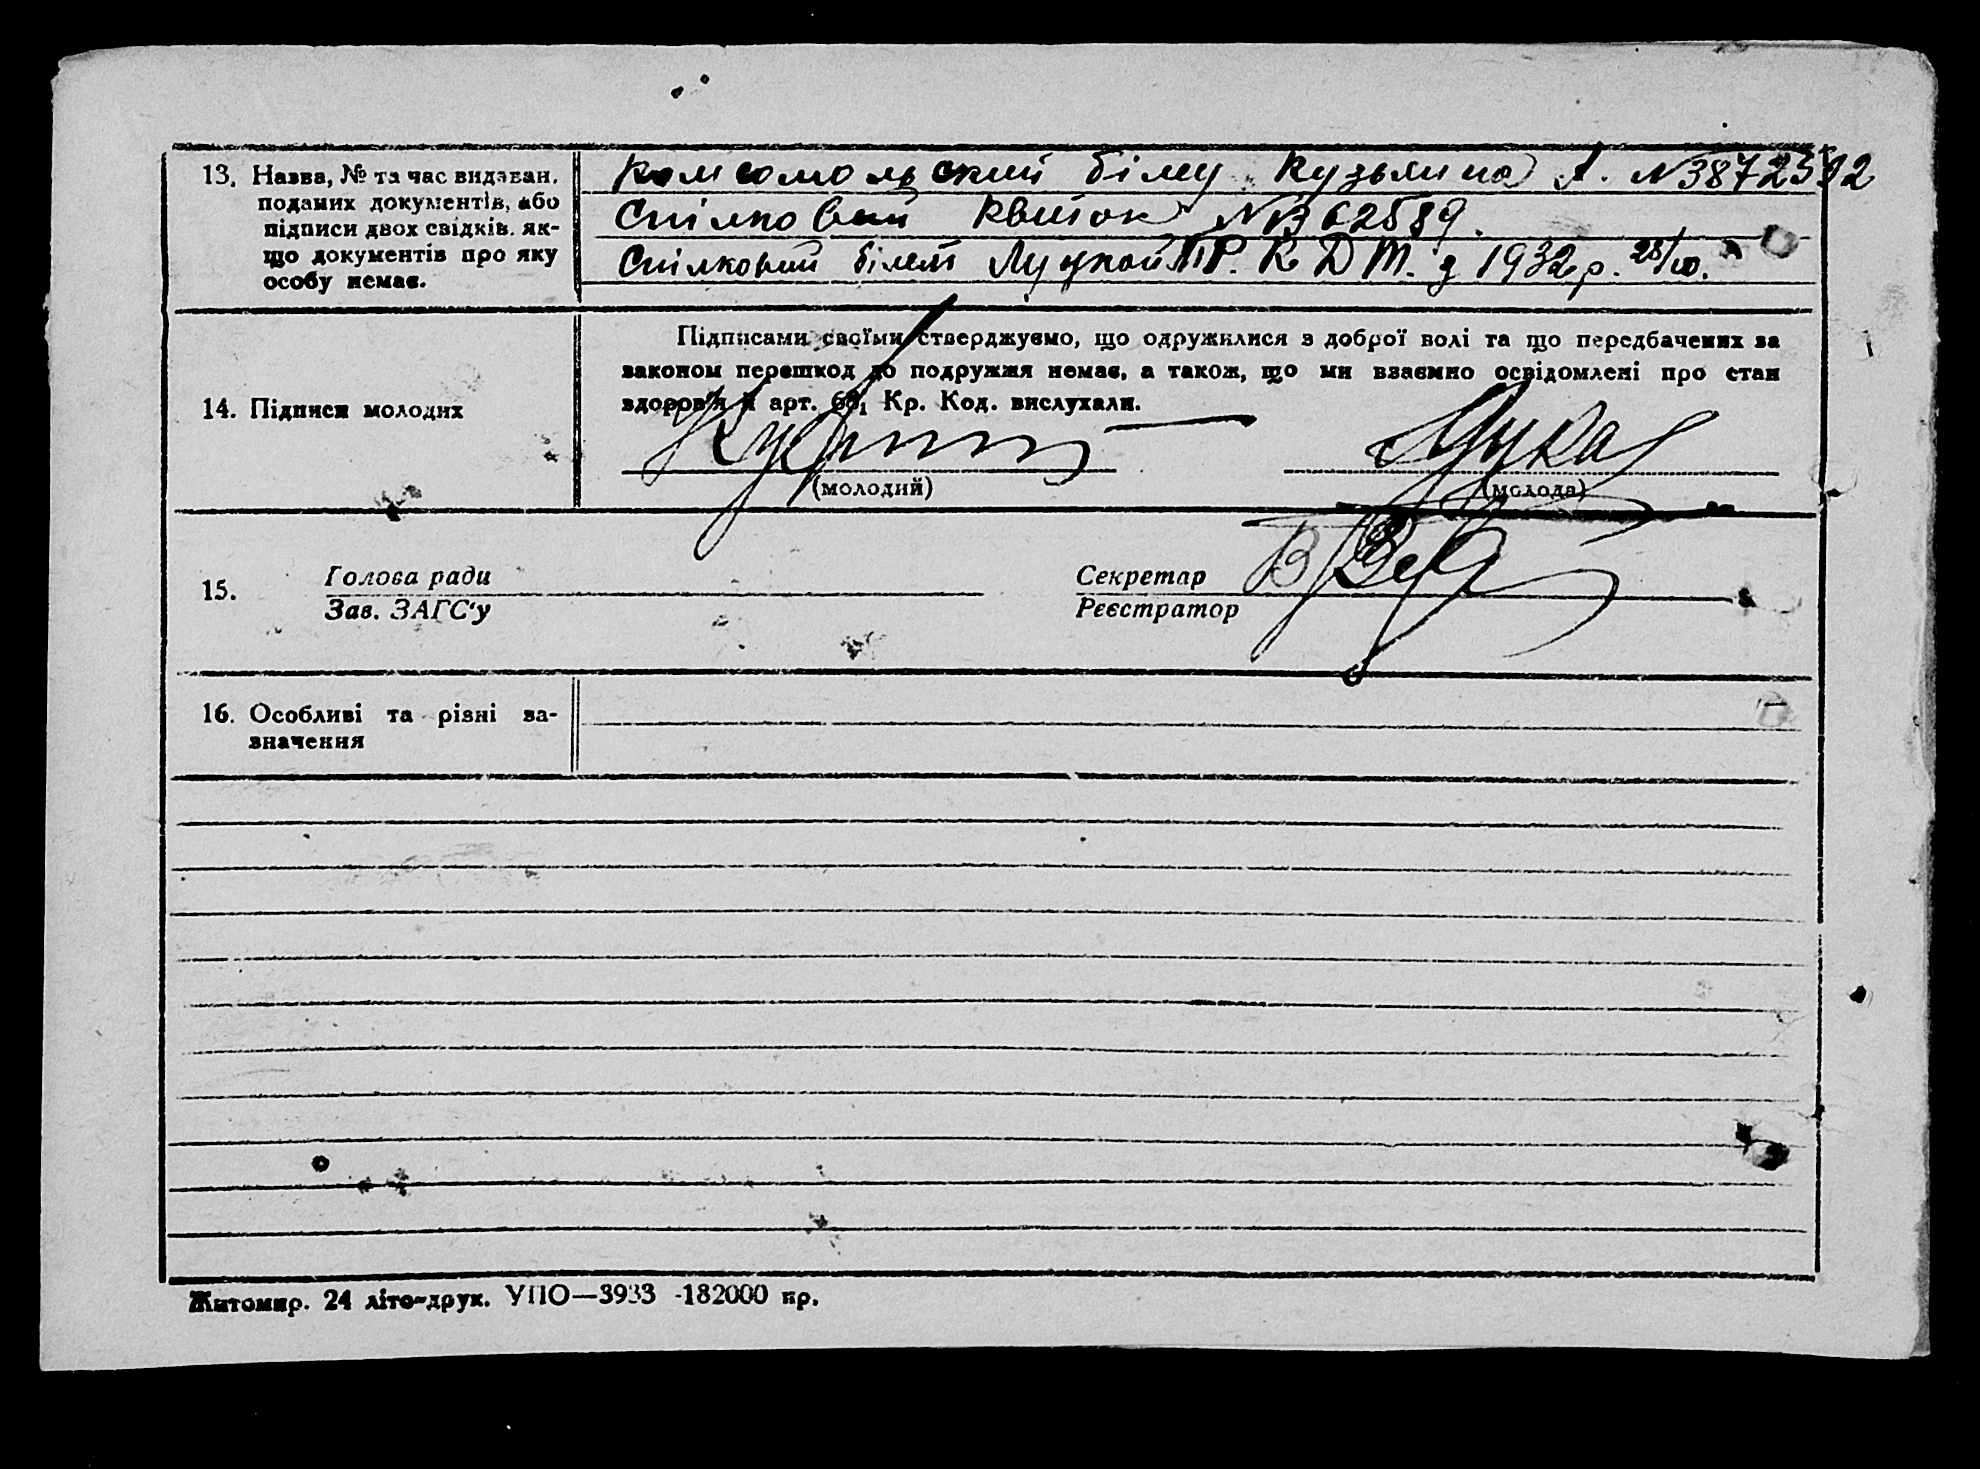 13. Назва, № та час видаван.
поданих документів, або
підписи двох свідків, як-
що документів про яку
особу немає.
Комсомольский білет Кузьмина А. №3872592
Спілковий квиток № 362589.
Спілковий білет Луцкой П. Р. К Д Т. з 1932 р. 28/10.
14. Підписи молодих
Підписами своїми стверджуємо, що одружилися з доброї волі та що передбачених за
законом перешкод до подружжя немає, а також, що ми взаємно освідомлені про стан
здоров'я й арт. 68₁ Кр. Код. вислухали.
(молодий) (молода)
15. Голова ради
Зав. ЗАГС'у
Секретар
Реєстратор
16. Особливі та різні за-
значення
Житомир. 24 літо-друк. УПО—3933 -182000 пр.